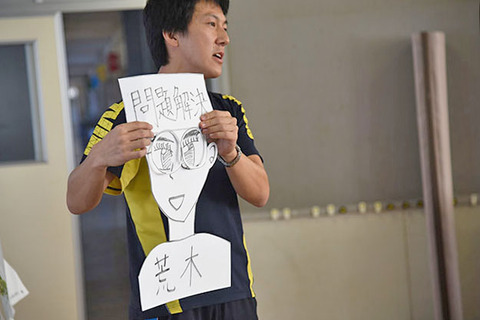 問題解決
荒木